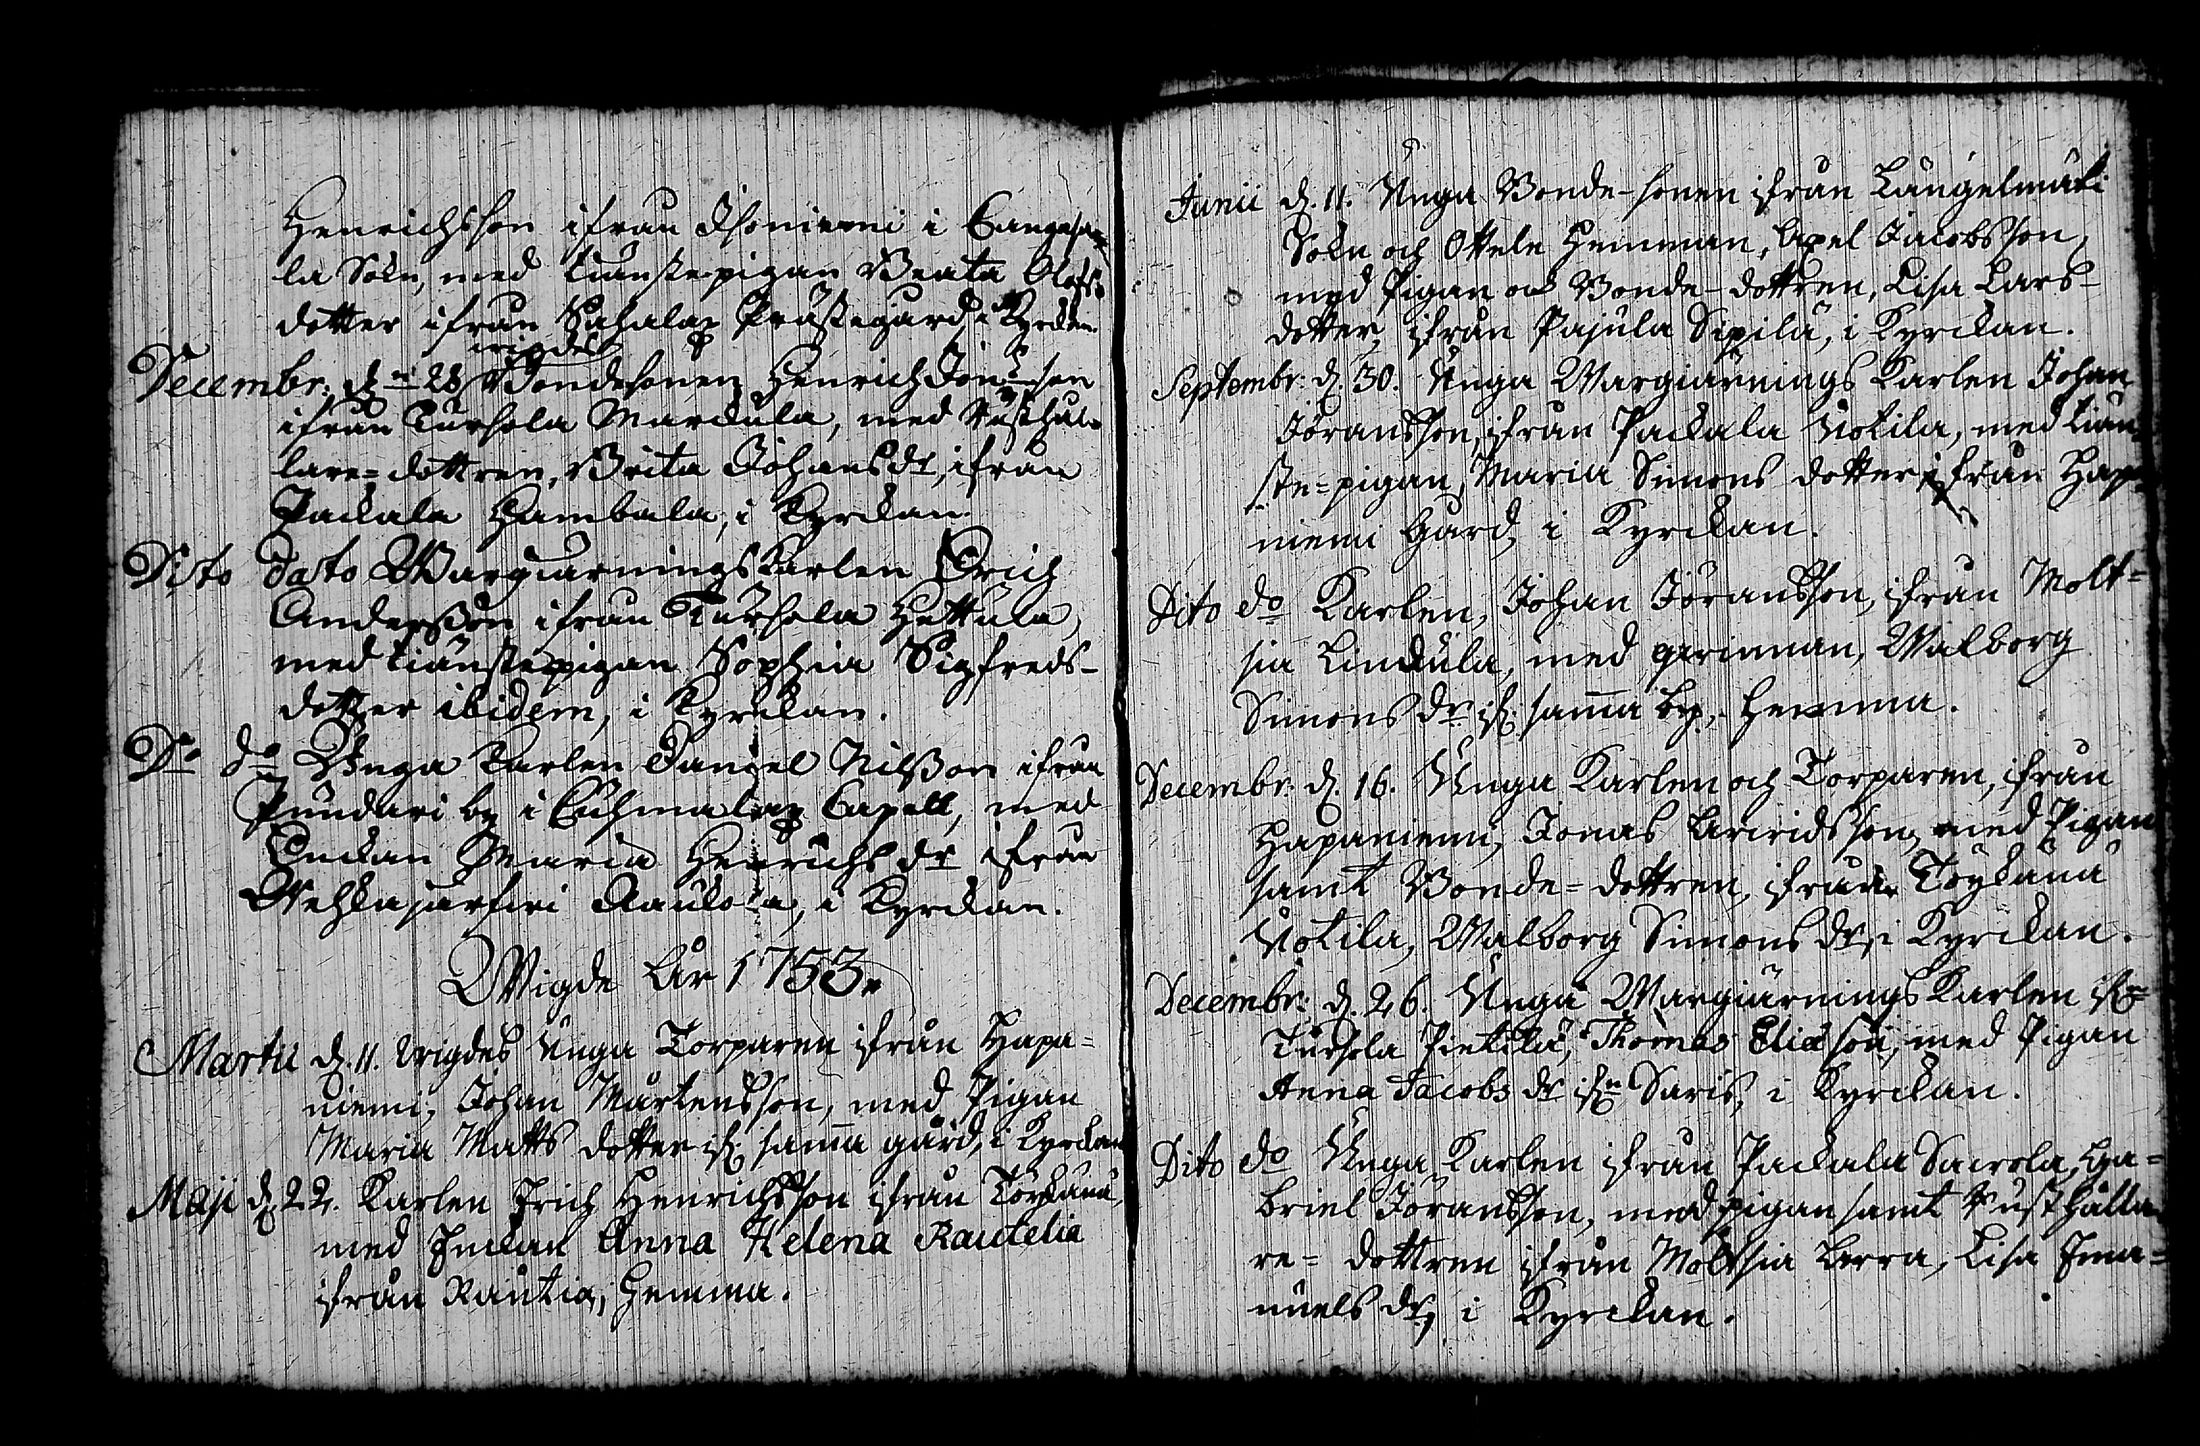 Henrichsson ifrån Ihoniemi i Cangasa-
la Sokn, med tiänstepigan Beata Olofs-
dotter ifrån Sahalax Prästegård, i Kyrckan.
wigdes
Decembr: d. 28 Bondesonen Henrich Jön[s]son
ifrån Tursola Marckula, med Rusthål-
lare=dottren, Brita Johansdr, ifrån
Packala Hambula, i Kyrckan.
Dito dato Wargiärningskarlen Erich
Andersson ifrån Tursola Huttula,
med tiänstepigan Sophia Sigfreds-
dotter ibidem, i Kyrckan.
Do do Unga Karlen Daniel Nilsson ifrån
Pundari by i Cuhmalax Capell, med
Enckan Maria Henrichs dr ifrån
Wehkajärfwi, i Kyrckan.
Wigde År 1753.
Martii d. 11. wigdes Unga Torparen ifrån Hapa-
niemi, Johan Mårtensson, med Pigan
Maria Matts dotter ifr. sama gård, i Kyrckan
Maji d. 22. Karlen Erich Henrichsson ifrån Töykänä,
med Enckan Anna Helena Rautelia
ifrån Rautia, hemma.
Junii d. 11. Unga Bonde-sonen ifrån Längelmäki
Sokn och Ottele Hemman, Axel Jacobsson,
med Pigan och Bonde-dottren, Lisa Lars-
dotter, ifrån Pajula Sipilä, i Kyrckan.
Septembr: d. 30. Unga Wargiärnings Karlen Johan
Jöransson, ifrån Packala Uotila, med tiän-
ste=pigan, Maria Simons dotter, ifrån Hapa-
niemi Gård, i Kyrckan.
Dito do Karlen, Johan Jöransson, ifrån Molt=
sia Linckula, med qwinnan, Walborg
Simons dr ifr. sama by, hemma.
Decembr. d. 16. Unga Karlen och Torparen, ifrån
Hapaniemi, Jonas Arwidsson, med Pigan
samt Bonde=dottren, ifrån Töykänä
Uotila, Walborg Simons dr, i Kyrckan.
Decembr: d. 26. Unga Wargiärnings Karlen ifrn
Tursola Pietilä, Thomas Eliæson, med Pigan
Anna Jacobs dr ifrn Saris, i Kyrckan.
Dito do Unga Karlen ifrån Packala Sawola, Ga=
briel Jöransson, med pigan samt Rusthålla-
re=dottren ifrån Moltsia Erra, Lisa Ema=
nuels dr, i Kyrckan.